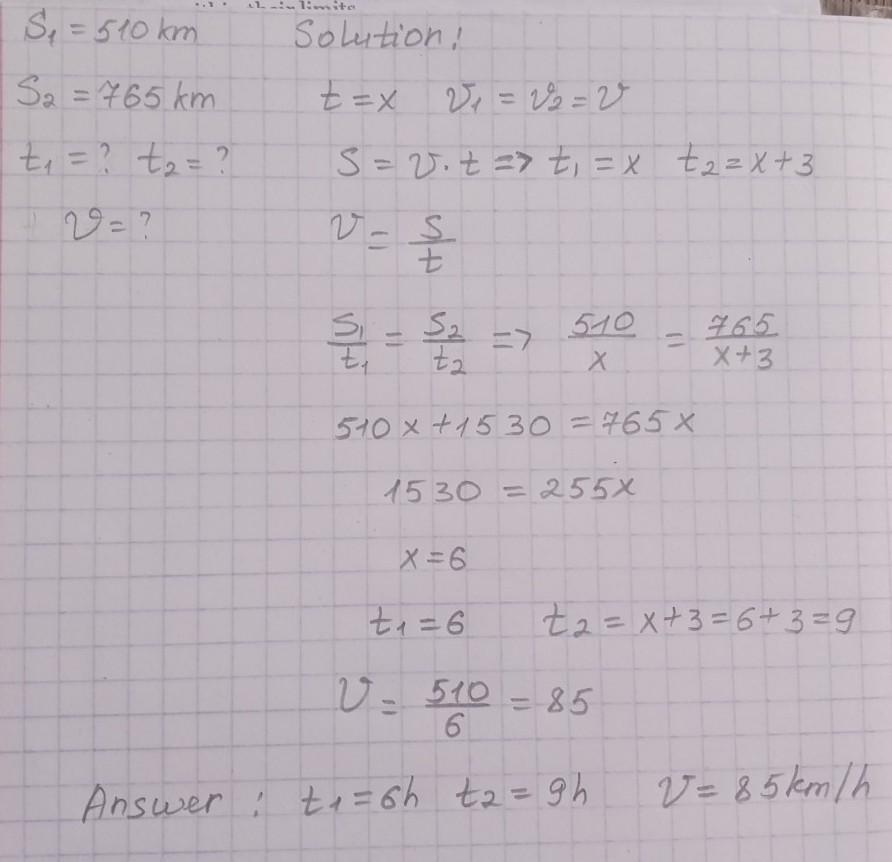 S₁ = 510 km Solution!
S₂ = 765 km t = x v₁ = v₂ = v
t₁ = ? t₂ = ? S = v · t => t₁ = x t₂ = x + 3
v = ? v = S/t
S₁/t₁ = S₂/t₂ => 510/x = 765/x+3
510x + 1530 = 765x
1530 = 255x
x = 6
t₁ = 6 t₂ = x + 3 = 6 + 3 = 9
v = 510/6 = 85
Answer : t₁ = 6h t₂ = 9h v = 85 km/h